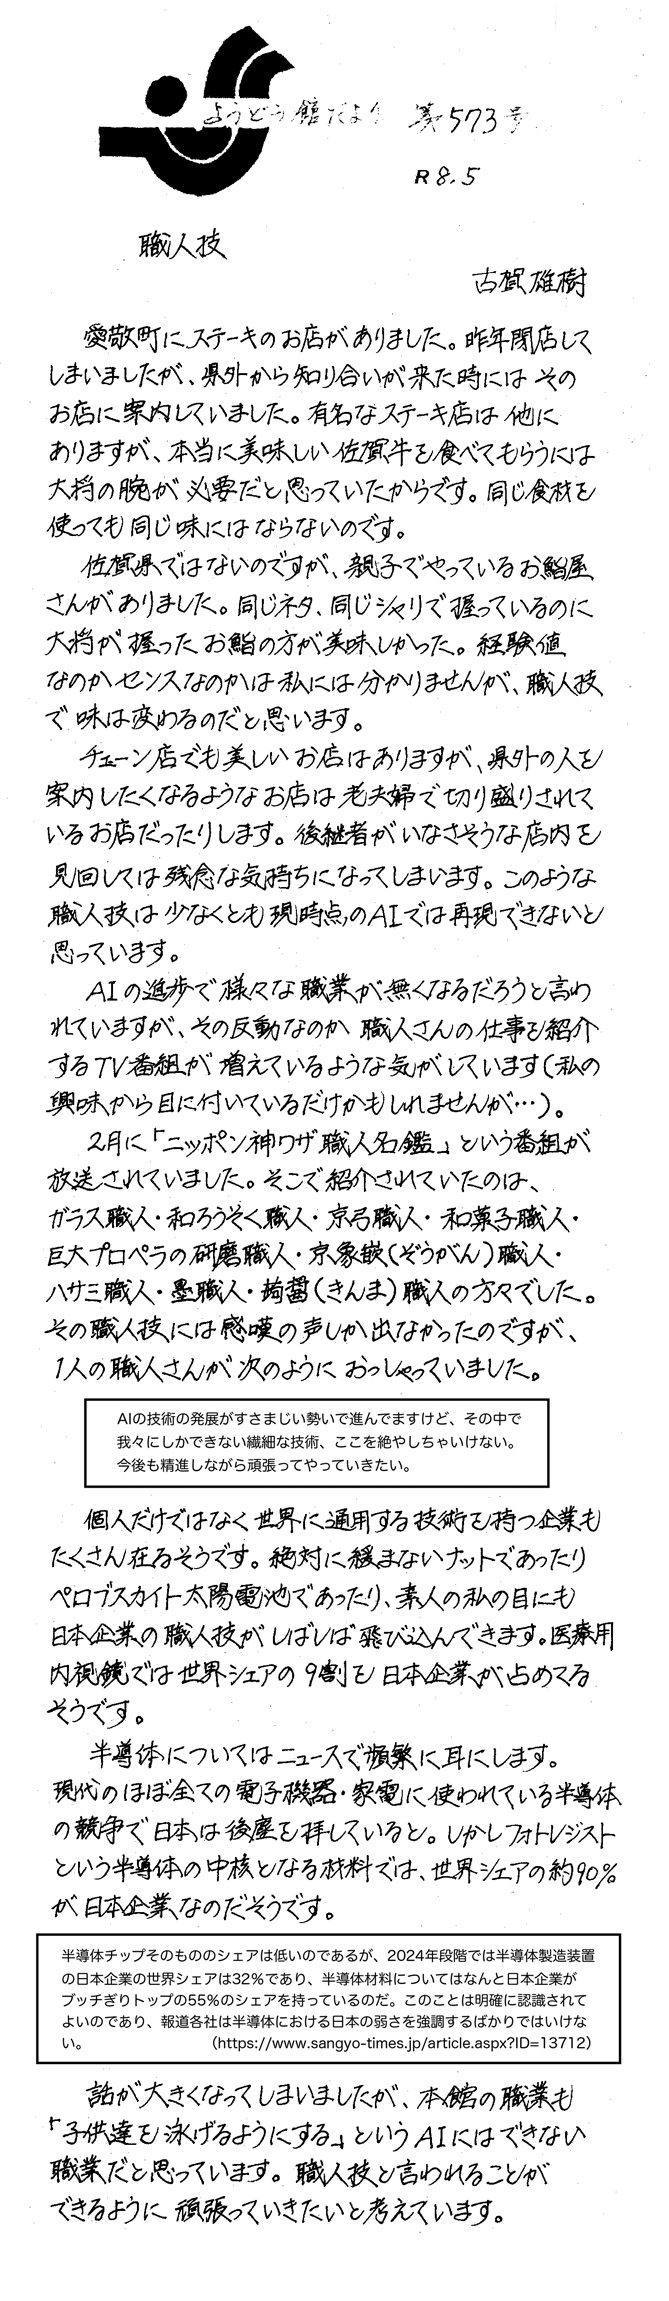 ようどう館だより 第573号
R 8.5
職人技
古賀雄樹
愛敬町にステーキのお店がありました。昨年閉店して
しまいましたが、県外から知り合いが来た時にはその
お店に案内していました。有名なステーキ店は他に
ありますが、本当に美味しい佐賀牛を食べてもらうには
大将の腕が必要だと思っていたからです。同じ食材を
使っても同じ味にはならないのです。
佐賀県ではないのですが、親子でやっているお鮨屋
さんがありました。同じネタ、同じシャリで握っているのに
大将が握ったお鮨の方が美味しかった。経験値
なのかセンスなのかは私には分かりませんが、職人技
で味は変わるのだと思います。
チェーン店でも美しいお店はありますが、県外の人を
案内したくなるようなお店は老夫婦で切り盛りされて
いるお店だったりします。後継者がいなさそうな店内を
見回しては残念な気持ちになってしまいます。このような
職人技は少なくとも現時点のAIでは再現できないと
思っています。
AIの進歩で様々な職業が無くなるだろうと言わ
れていますが、その反動なのか職人さんの仕事を紹介
するTV番組が増えているような気がしています(私の
興味から目に付いているだけかもしれませんが…)。
2月に「ニッポン神ワザ職人名鑑」という番組が
放送されていました。そこで紹介されていたのは、
ガラス職人・和ろうそく職人・京弓職人・和菓子職人・
巨大プロペラの研磨職人・京象嵌(ぞうがん)職人・
ハサミ職人・墨職人・蒟醤(きんま)職人の方々でした。
その職人技には感嘆の声しか出なかったのですが、
1人の職人さんが次のようにおっしゃっていました。
AIの技術の発展がすさまじい勢いで進んでますけど、その中で
我々にしかできない繊細な技術、ここを絶やしちゃいけない。
今後も精進しながら頑張ってやっていきたい。
個人だけではなく世界に通用する技術を持つ企業も
たくさん在るそうです。絶対に緩まないナットであったり
ペロブスカイト太陽電池であったり、素人の私の目にも
日本企業の職人技がしばしば飛び込んできます。医療用
内視鏡では世界シェアの9割を日本企業が占めてる
そうです。
半導体についてはニュースで頻繁に耳にします。
現代のほぼ全ての電子機器・家電に使われている半導体
の競争で日本は後塵を拝していると。しかしフォトレジスト
という半導体の中核となる材料では、世界シェアの約90%
が日本企業なのだそうです。
半導体チップそのもののシェアは低いのであるが、2024年段階では半導体製造装置
の日本企業の世界シェアは32%であり、半導体材料についてはなんと日本企業が
ブッチぎりトップの55%のシェアを持っているのだ。このことは明確に認識されて
よいのであり、報道各社は半導体における日本の弱さを強調するばかりではいけな
い。 (https://www.sangyo-times.jp/article.aspx?ID=13712)
話が大きくなってしまいましたが、本館の職業も
「子供達を泳げるようにする」というAIにはできない
職業だと思っています。職人技と言われることが
できるように頑張っていきたいと考えています。